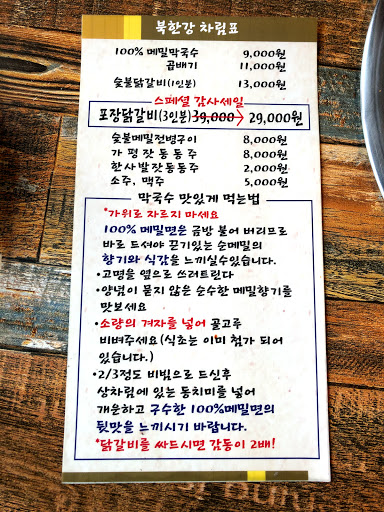 북한강 차림표
100% 메밀막국수 9,000원
곱배기 11,000원
숯불닭갈비(1인분) 13,000원
스페셜 감사세일
포장닭갈비(3인분) 39,000 → 29,000원
숯불메밀전병구이 8,000원
가평잣동동주 8,000원
한사발잣동동주 2,000원
소주, 맥주 5,000원
막국수 맛있게 먹는법
*가위로 자르지 마세요
100% 메밀면은 금방 불어 버리므로
바로 드셔야 끈기있는 순메밀의
향기와 식감을 느끼실수있습니다.
•고명을 옆으로 쓰러트린다
•양념이 묻지 않은 순수한 메밀향기를
맛보세요
•소량의 겨자를 넣어 골고루
비벼주세요(식초는 이미 첨가 되어
있습니다.)
•2/3정도 비빔으로 드신후
상차림에 있는 동치미를 넣어
개운하고 구수한 100%메밀면의
뒷맛을 느끼시기 바랍니다.
*닭갈비를 싸드시면 감동이 2배!